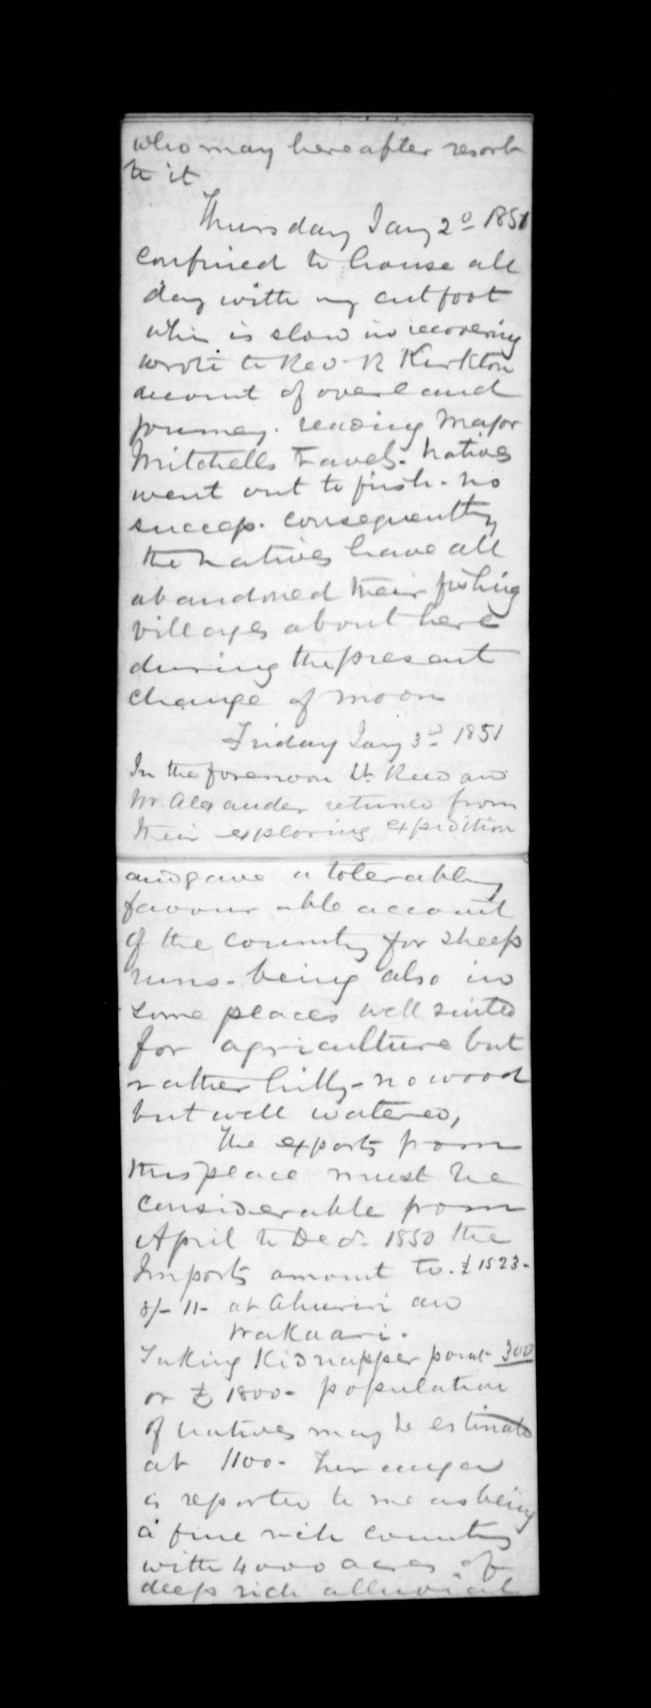 who may hereafter resort
to it
Thursday Jany 2d 1851
confined to house all
day with my cut foot
whi is slow in recovering
wrote to Rev. R Kirkton
account of overland
journey. reading Major
Mitchells Travels. Natives
went out to fish. no
success. consequently
the natives have all
abandoned their fishing
villages about here
during the present
change of moon
Friday Jany 3d 1851
In the forenoon Lt. Reed and
Mr. Alexander returned from
their exploring expidition
and gave a tolerably
favourable account
of the country for sheep
runs. being also in
some places well suited
for agriculture but
rather hilly - no wood
but well watered,
The exports from
this place must be
considerable from
April to Decr. 1850 the
Imports amount to. £1523-
8/- 11- at Ahuriri and
Wakaari.
Taking Kidnapper point 300
or £1800- population
of natives may be estimate
at 1100-
is reported to me as being
a fine rich country
with 4000 acres of
deep rich alluvial